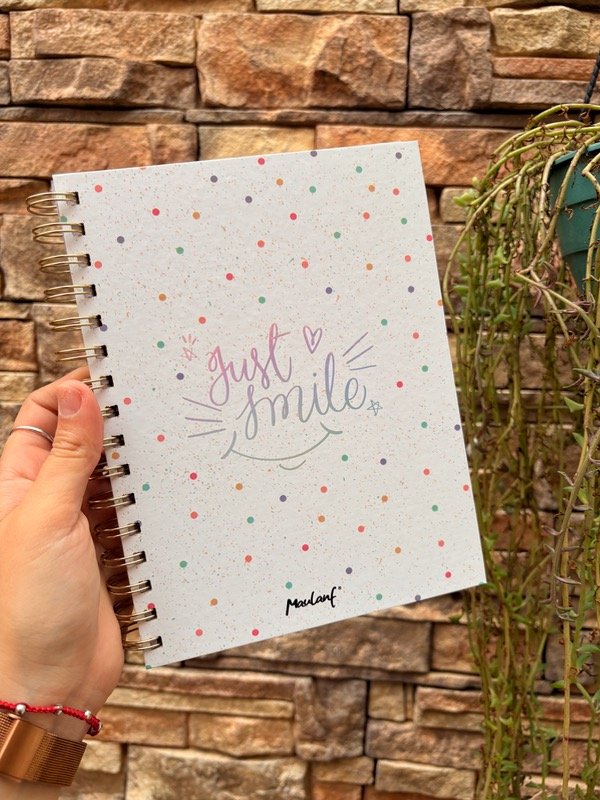 just
smile
Maulanf®